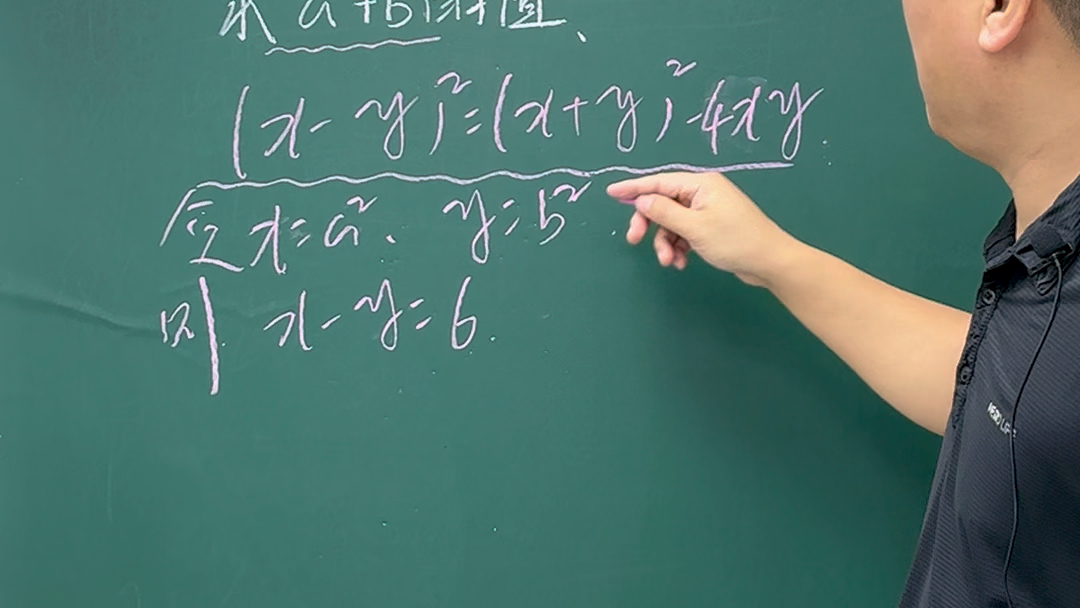 求 a+b的值、
(x-y)²=(x+y)²-4xy.
令 x=a²、 y=b².
则 x-y=6.